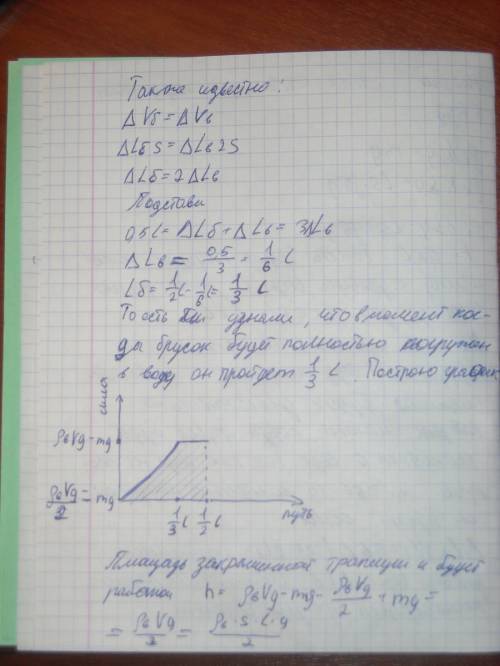 Также известно:
ΔVб = ΔVв
ΔLб S = ΔLв 2S
ΔLб = 2ΔLв
Подстави
0,5L = ΔLб + ΔLв = 3ΔLв
ΔLв = 0,5/3 = 1/6 L
Lб = 1/2 L - 1/6 L = 1/3 L
То есть узнали, что в момент ког-
да брусок будет полностью погружен
в воду он пройдет 1/3 L. Построю график
сила
ρвVg - mg
ρвVg/2 = mg
1/3 L 1/2 L путь
Площадь закрашенной трапеции и будет
работой h = ρвVg - mg - ρвVg/2 + mg =
= ρвVg/2 = ρв·S·L·g/2